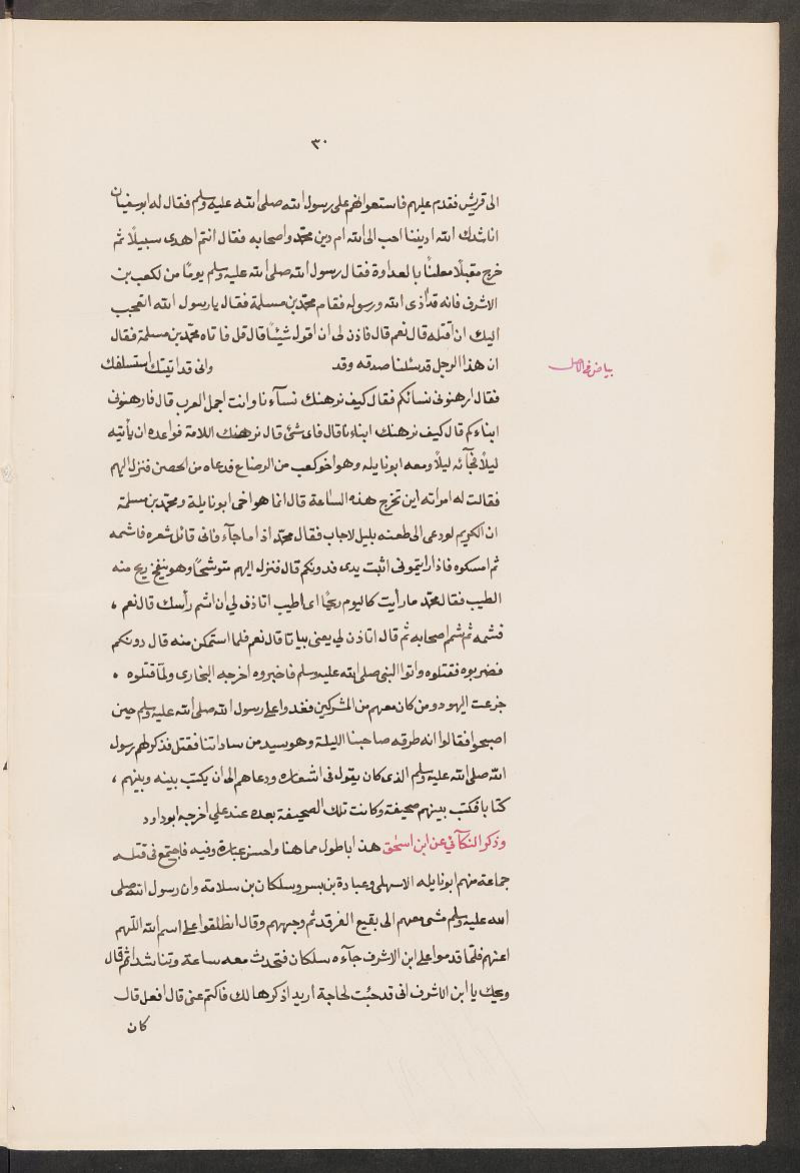 ٣٠
الى قريش فقدم عليهم فاستعوالهم على رسول الله صلى الله عليه وسلم فقال له ابوسفيان
اناشدك الله اديننا احب الى الله ام دين محمد واصحابه فقال انتم اهدى سبيلًا ثم
خرج مقبلًا معلنًا بالعداوة فقال رسول الله صلى الله عليه وسلم يومًا من لكعب بن
الاشرف فانه قد أذى الله ورسوله فقام محمد بن مسلمة فقال يا رسول الله اتحب
اليك ان اقتله قال نعم قال فاذن لى ان اقول شيئًا قال قل فاتاه محمد بن مسلمة فقال
ان هذا الرجل قد سئلنا صدقه وقد وانى قد اتيتك استسلفك
بياض فى الاصل
فقال ارهنونى نسائكم فقال كيف نرهنك نسآءنا وانت اجمل العرب قال فارهنونى
ابناءكم قال كيف نرهنك ابناءنا قال فاى شئ قال نرهنك اللامة فواعده ان يأتيه
ليلًا فجآئه ليلًا ومعه ابونايله وهو اخو كعب من الرضاع فدعاه من الحصن فنزل اليهم
فقالت له امراته اين تخرج هذه الساعة قال انما هو اخى ابونايلة ومحمد بن مسلمة
ان الكريم لو دعى الى طعنه بليل لاجاب فقال محمد اذا ما جآء فانى قائل شعره فاشمه
ثم امسكوه فاذا رايتمونى اثبت يدى فدونكم قال فنزل اليهم متوشحًا وهو ينفخ ريح منه
الطيب فقال محمد ما رأيت كاليوم ريحًا اى اطيب اتاذن لي ان اشم رأسك قال نعم ،
فشمه ثم شم اصحابه ثم قال اتاذن لي يعنى بياتا قال نعم فلما استمكن منه قال دونكم
فضربوه فقتلوه واتوا النبى صلى الله عليه وسلم فاخبروه اخرجه البخارى ولما قتلوه .
جزعت اليهود ومن كان معهم من المشركين فغدوا على رسول الله صلى الله عليه وسلم حين
اصبحوا فقالوا انه طرقه صاحبنا الليلة وهو سيد من ساداتنا فقتل فذكر لهم رسول
الله صلى الله عليه وسلم الذى كان يقول فى اشعاره ودعاهم الى ان يكتب بينه وبينهم ،
كتابا فكتب بينهم صحيفة وكانت تلك الصحيفة بعده عند علي اخرجه ابو داود
وذكر النكآئي عن ابن اسحق هذا باطول مما هنا واحسن عبارة وفيه فاجتمع فى قتله
جماعة منهم ابونايله الاسهلى وعبادة بن بسر وسلكان بن سلامة وان رسول الله صلى
الله عليه وسلم مشى معهم الى بقيع الغرقد ثم وجههم وقال انطلقوا على اسم الله اللهم
اعنهم فلما قدموا على ابن الاشرف جآءه سلكان فتحدث معه ساعة وتناشدا ثم قال
ويحك يا ابن الاشرف انى قد جئت لحاجة اريد اذكرها لك فاكتم عنى قال افعل قال
كان